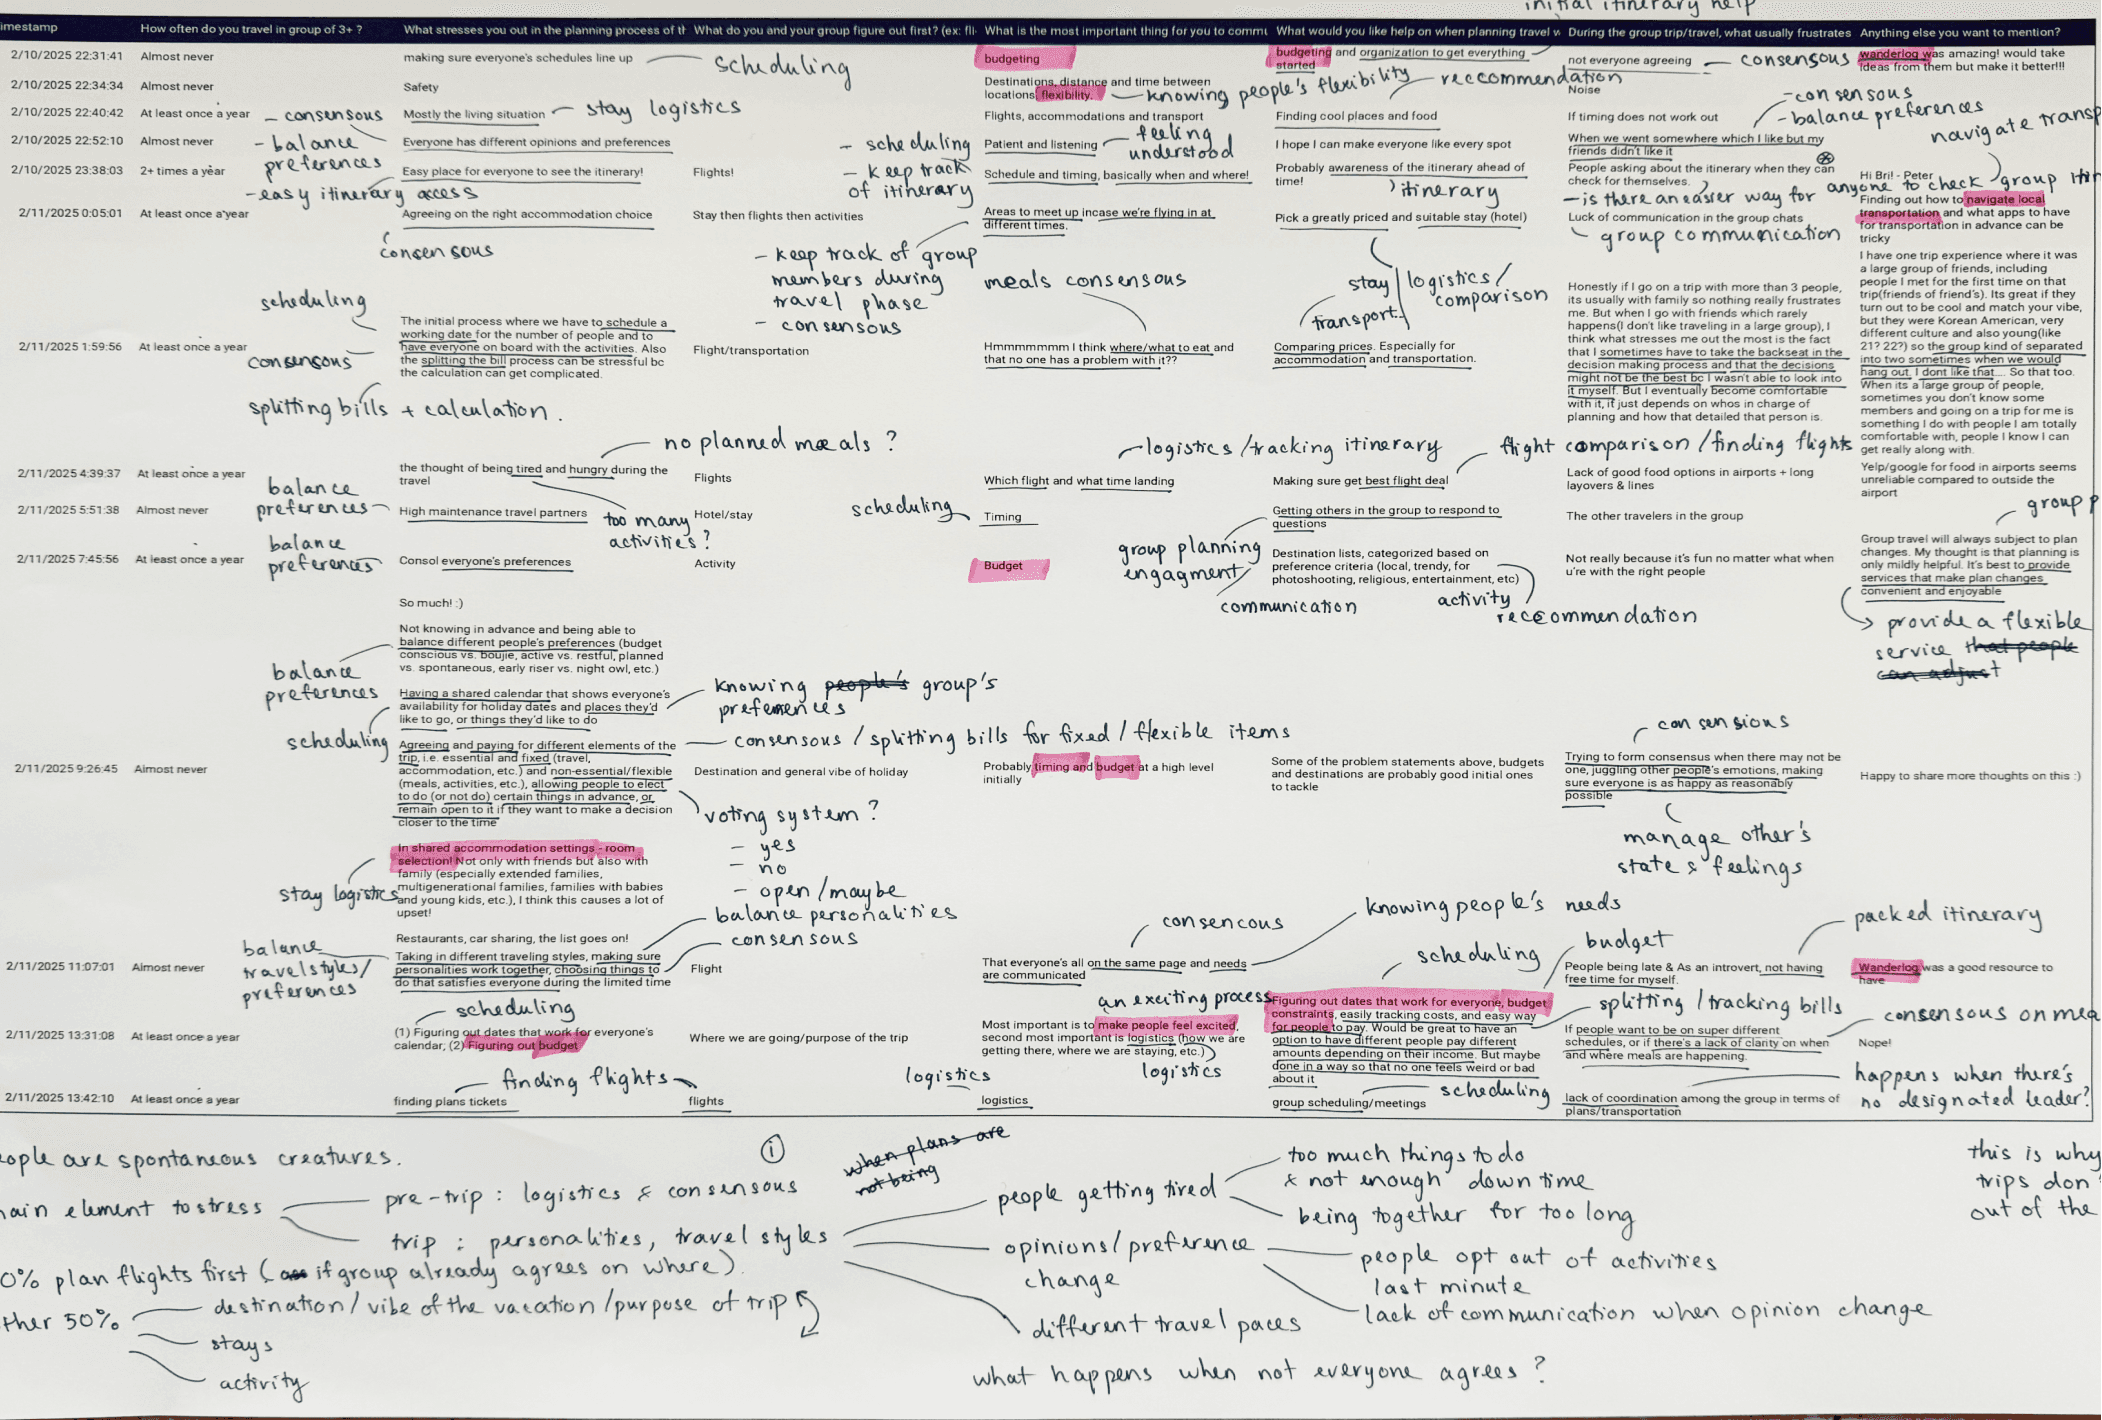 initial itinerary help
imestamp
How often do you travel in group of 3+ ?
What stresses you out in the planning process of th
What do you and your group figure out first? (ex: fli
What is the most important thing for you to commu
What would you like help on when planning travel w
During the group trip/travel, what usually frustrates
Anything else you want to mention?
2/10/2025 22:31:41
Almost never
making sure everyone's schedules line up
scheduling
budgeting
budgeting and organization to get everything
started
not everyone agreeing
consensous
wanderlog was amazing! would take
ideas from them but make it better!!!
2/10/2025 22:34:34
Almost never
Safety
Destinations, distance and time between
locations, flexibility.
knowing people's flexibility
reccommendation
Noise
2/10/2025 22:40:42
At least once a year
- consensous
Mostly the living situation
stay logistics
Flights, accommodations and transport
Finding cool places and food
If timing does not work out
- consensous
- balance preferences
navigate transp
2/10/2025 22:52:10
Almost never
- balance
preferences
Everyone has different opinions and preferences
- scheduling
Patient and listening
feeling
understood
I hope I can make everyone like every spot
When we went somewhere which I like but my
friends didn't like it
2/10/2025 23:38:03
2+ times a year
- easy itinerary access
Easy place for everyone to see the itinerary!
Flights!
- keep track
of itinerary
Schedule and timing, basically when and where!
Probably awareness of the itinerary ahead of
time!
itinerary
People asking about the itinerary when they can
check for themselves.
- is there an easier way for anyone to check group itin
Hi Bri! - Peter
Finding out how to navigate local
transportation and what apps to have
for transportation in advance can be
tricky
2/11/2025 0:05:01
At least once a year
Agreeing on the right accommodation choice
consensous
Stay then flights then activities
- keep track of group
members during
travel phase
- consensous
Areas to meet up incase we're flying in at
different times.
Pick a greatly priced and suitable stay (hotel)
stay
logistics/
comparison
transport
Luck of communication in the group chats
group communication
2/11/2025 1:59:56
At least once a year
scheduling
consensous
splitting bills + calculation.
The initial process where we have to schedule a
working date for the number of people and to
have everyone on board with the activities. Also
the splitting the bill process can be stressful bc
the calculation can get complicated.
Flight/transportation
meals consensous
Hmmmmmm I think where/what to eat and
that no one has a problem with it??
Comparing prices. Especially for
accommodation and transportation.
Honestly if I go on a trip with more than 3 people,
its usually with family so nothing really frustrates
me. But when I go with friends which rarely
happens(I don't like traveling in a large group), I
think what stresses me out the most is the fact
that I sometimes have to take the backseat in the
decision making process and that the decisions
might not be the best bc I wasn't able to look into
it myself. But I eventually become comfortable
with it, it just depends on whos in charge of
planning and how that detailed that person is.
I have one trip experience where it was
a large group of friends, including
people I met for the first time on that
trip(friends of friend's). Its great if they
turn out to be cool and match your vibe,
but they were Korean American, very
different culture and also young(like
21? 22?) so the group kind of separated
into two sometimes when we would
hang out. I dont like that.... So that too.
When its a large group of people,
sometimes you don't know some
members and going on a trip for me is
something I do with people I am totally
comfortable with, people I know I can
get really along with.
2/11/2025 4:39:37
At least once a year
the thought of being tired and hungry during the
travel
no planned meals ?
too many
activities ?
Flights
logistics/tracking itinerary
Which flight and what time landing
Making sure get best flight deal
flight comparison /finding flights
Lack of good food options in airports + long
layovers & lines
Yelp/google for food in airports seems
unreliable compared to outside the
airport
2/11/2025 5:51:38
Almost never
balance
preferences
High maintenance travel partners
Hotel/stay
scheduling
Timing
Getting others in the group to respond to
questions
group planning
engagment
communication
The other travelers in the group
2/11/2025 7:45:56
At least once a year
balance
preferences
Consol everyone's preferences
Activity
Budget
Destination lists, categorized based on
preference criteria (local, trendy, for
photoshooting, religious, entertainment, etc)
activity
reccommendation
Not really because it's fun no matter what when
u're with the right people
group p
Group travel will always subject to plan
changes. My thought is that planning is
only mildly helpful. It's best to provide
services that make plan changes
convenient and enjoyable
provide a flexible
service that people
can adjust
2/11/2025 9:26:45
Almost never
So much! :)
Not knowing in advance and being able to
balance different people's preferences (budget
conscious vs. boujie, active vs. restful, planned
vs. spontaneous, early riser vs. night owl, etc.)
balance
preferences
Having a shared calendar that shows everyone's
availability for holiday dates and places they'd
like to go, or things they'd like to do
scheduling
knowing people's group's
preferences
Agreeing and paying for different elements of the
trip, i.e. essential and fixed (travel,
accommodation, etc.) and non-essential/flexible
(meals, activities, etc.), allowing people to elect
to do (or not do) certain things in advance, or
remain open to it if they want to make a decision
closer to the time
consensous / splitting bills for fixed / flexible items
voting system ?
- yes
- no
- open /maybe
In shared accommodation settings - room
selection! Not only with friends but also with
family (especially extended families,
multigenerational families, families with babies
and young kids, etc.), I think this causes a lot of
upset!
stay logistics
Restaurants, car sharing, the list goes on!
Destination and general vibe of holiday
Probably timing and budget at a high level
initially
Some of the problem statements above, budgets
and destinations are probably good initial ones
to tackle
consensious
Trying to form consensus when there may not be
one, juggling other people's emotions, making
sure everyone is as happy as reasonably
possible
manage other's
state & feelings
Happy to share more thoughts on this :)
2/11/2025 11:07:01
Almost never
balance
travel styles/
preferences
Taking in different traveling styles, making sure
personalities work together, choosing things to
do that satisfies everyone during the limited time
balance personalities
consensous
Flight
consencous
knowing people's needs
That everyone's all on the same page and needs
are communicated
scheduling
budget
Figuring out dates that work for everyone, budget
constraints, easily tracking costs, and easy way
for people to pay. Would be great to have an
option to have different people pay different
amounts depending on their income. But maybe
done in a way so that no one feels weird or bad
about it
splitting / tracking bills
People being late & As an introvert, not having
free time for myself.
packed itinerary
Wanderlog was a good resource to
have
2/11/2025 13:31:08
At least once a year
scheduling
(1) Figuring out dates that work for everyone's
calendar; (2) Figuring out budget
Where we are going/purpose of the trip
an exciting process
Most important is to make people feel excited,
second most important is logistics (how we are
getting there, where we are staying, etc.)
logistics
If people want to be on super different
schedules, or if there's a lack of clarity on when
and where meals are happening.
consensous on mea
Nope!
2/11/2025 13:42:10
At least once a year
finding plans tickets
finding flights
flights
logistics
logistics
group scheduling/meetings
scheduling
lack of coordination among the group in terms of
plans/transportation
happens when there's
no designated leader?
eople are spontaneous creatures.
main element to stress
pre-trip : logistics & consensous
trip : personalities, travel styles
i
when plans are
not being
people getting tired
too much things to do
& not enough down time
being together for too long
opinions/preference
change
people opt out of activities
last minute
lack of communication when opinion change
different travel paces
0% plan flights first ( if group already agrees on where).
ther 50%
destination/ vibe of the vacation /purpose of trip
stays
activity
what happens when not everyone agrees ?
this is why
trips don'
out of the